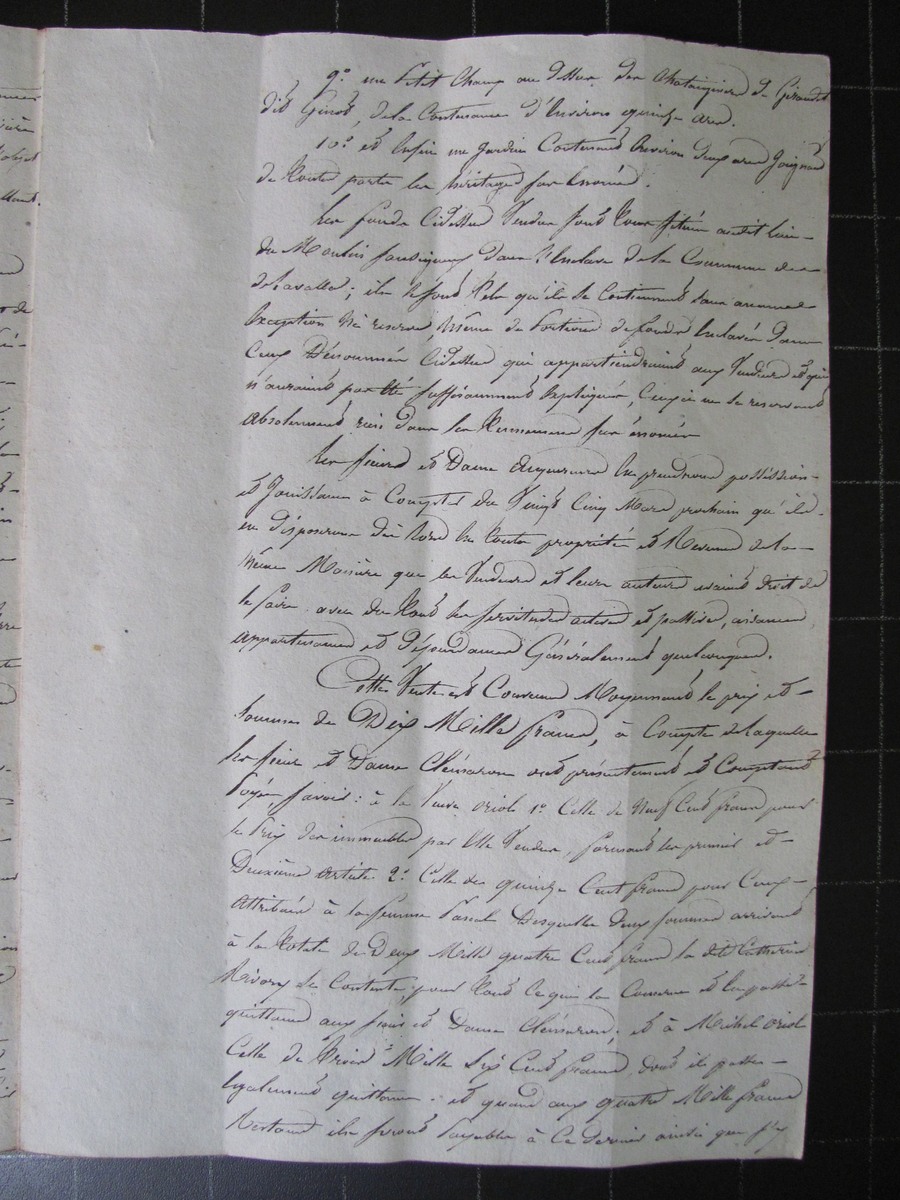 9° un Petit Champ au dessus des Chataigniers de Giraudet
dit Ginot, de la Contenance d'Environ quinze ares.
10° et Enfin un Jardin Contenant Environ deux ares Joignant
de toutes parts les héritages sus Enoncés.
Les fonds Cidessus Vendus sont Tous situés audit lieu
du Moulin dans l'Enclave de la Commune de
de Lavalla; ils le sont tels qu'ils se Contiennent sans aucune
Exception Ni reserve, Même de Portions de fonds Enclavés Dans
Ceux Dénommés Cidessus qui appartiendraient aux Vendeurs et qui
n'auraient pas été suffisamment Expliqués, Ceux-ci ne se reservant
absolument rien dans les sus énoncés
Les sieurs et Dame Acquereurs En prendront possession
et Jouissance à Compter du Vingt Cinq Mars prochain qu'ils
en disposeront dès lors En Toute propriété et de la
Même Manière que les Vendeurs et leurs auteurs avaient droit de
le faire avec Tous les servitudes actives et passives, aisances,
appartenances et Dépendances Généralement quelconques.
Cette Vente est Convenue Moyennant le prix et
Sommes de Dix Mille francs, à Compte de laquelle
les sieur et Dame Clémaron ont présentement et Comptant
Payé, savoir: à la Veuve oriol 1° Celle de Neuf Cent francs pour
le Prix des immeubles par Elle Vendus, formant les premier et
Deuxième articles 2° Celle de quinze Cent francs pour Ceux
attribués à la femme Pascal Desquelles deux sommes arrivant
à la Totale de Deux Mille quatre Cent francs la dite Catherine
Rivory se Contente, pour Tout Ce qui la Concerne et En passe
quittance aux sieur et Dame Clémaron; et à Michel oriol
Celle de Trois Mille Six Cent francs, dont il passe
Egalement quittance. et quand aux quatre Mille francs
Restant ils seront Payables à Ce Dernier ainsi que